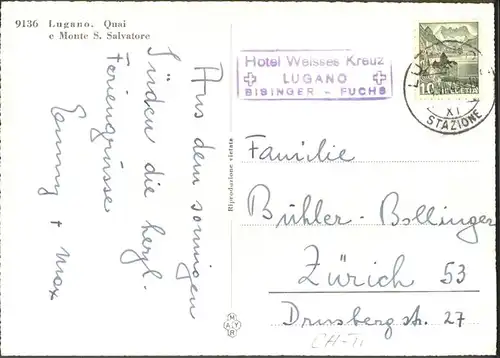 9136 Lugano. Quai
e Monte S. Salvatore
Aus dem sonnigen
Süden die herzl.
Feriengrüsse
Emmy + Max
Riproduzione vietata
MAYR
Hotel Weisses Kreuz
LUGANO
BISINGER - FUCHS
10 HELVETIA
XI
STAZIONE
Familie
Bühler-Bollinger
Zürich 53
Drusbergstr. 27
CH-TI